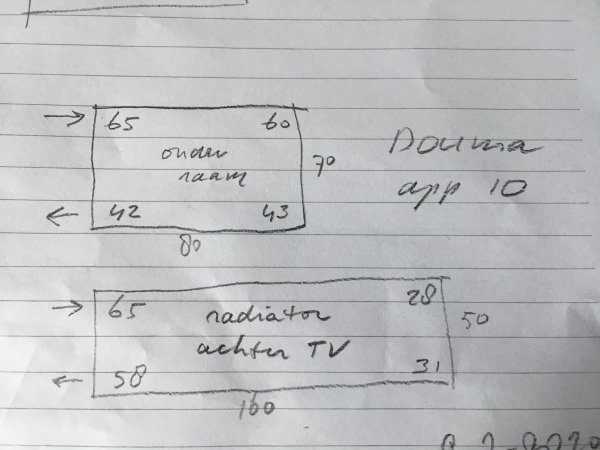 65 60
onder
raam
70
42 43
80
Douma
app 10
65 28
radiator
achter TV
50
58 31
160